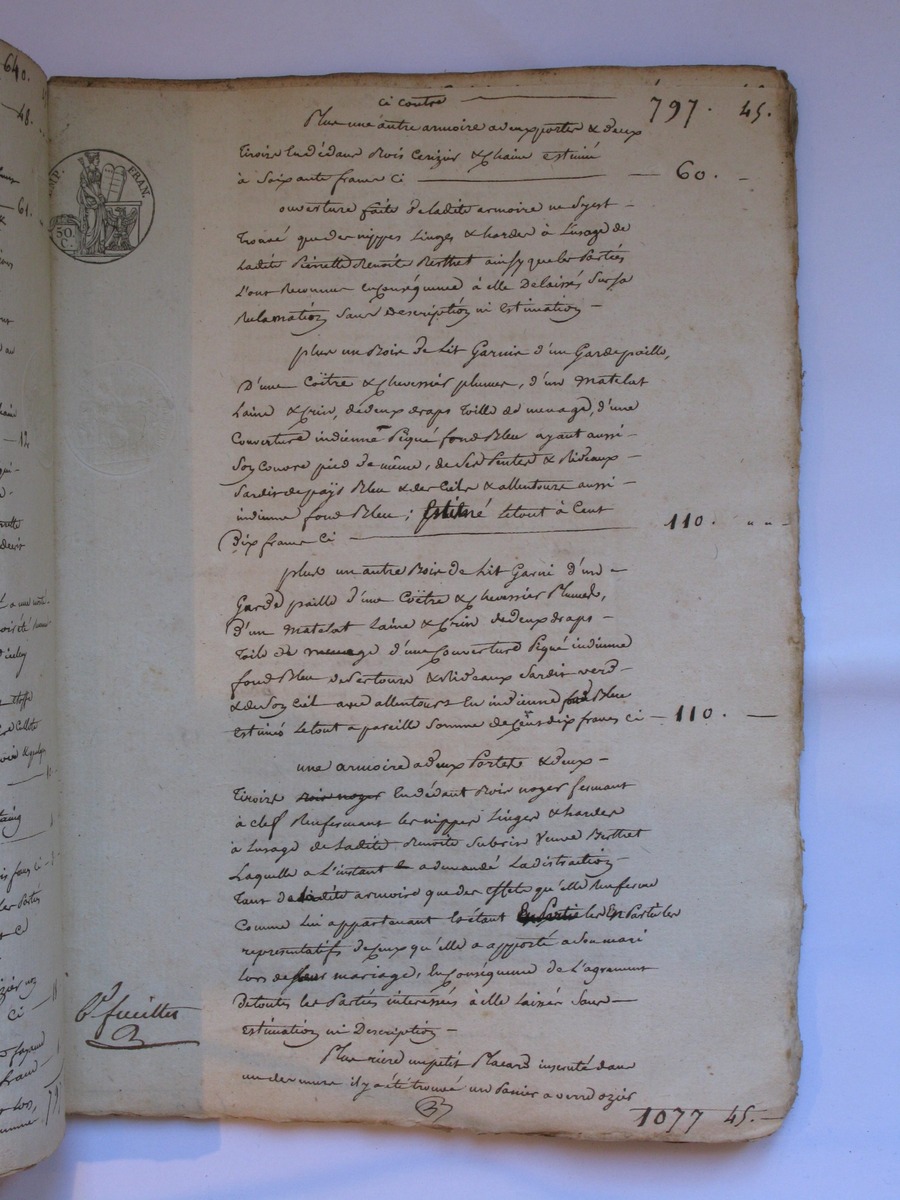 ci contre 797. 45.
Plus une autre armoire a deux portes & deux
tiroirs en dédans Bois Cerizier & Chaine estimé
à Soixante francs Ci 60. -
ouverture faite de ladite armoire ne S'y est -
trouvé que des nippes Linges & hardes à L'usage de
Ladite Pierrette Benoite Berthet ainsy que les Parties
L'ont Reconnus en conséquence à elle Delaissés Sur sa
Réclamation Sans Description ni estimation -
plus un Bois de Lit Garnie d'un Gardepaille,
D'une Coître & Chevessier plumes, d'un Matelat
Laine & Crin, de deux draps toille de menage, d'une
Couverture indienne Piqué fond Bleu ayant aussi -
Son Couvre pied de même, de Ses Pentes & Rideaux -
Sardis de païs Bleu & des Ciels & allentours aussi -
indienne fond Bleu; Estimé le tout à Cent
Dix francs Ci 110. " " -
plus un autre Bois de Lit Garni d'un -
Garde paille d'une Coître & Chevessier Plumes,
d'un Matelat Laine & Crin de deux draps -
toile de menage d'une Couverture Piqué indienne
fond Bleu de Ses tours & Rideaux Sardis verd -
& de Son Ciel avec allentours en indienne fond Bleu
estimés Le tout a pareille Somme de Cent dix francs ci - 110. -
une armoire a deux Portes & deux -
tiroirs noir noyer En dédant Bois noyer fermant
à clef Renfermant les nippes Linges & hardes
à L'usage de Ladite Benoite Subrin Veuve Berthet
Laquelle a L'instant a demandé La distraction
tant de ladite armoire que des effets qu'elle Renferme
Comme Lui appartenant Les étant En Partie les En Partie les
representatifs de Ceux qu'elle a apporté a Son mari
Lors de leur mariage, En Conséquence de L'agrement
De toutes les Parties interessées à elle Laissés Sans -
estimation ni Description -
Plus rière un petit Placard incruté dans
un des murs il y a été trouvé un Panier a verre ozier
1077 45. -
6e feuillet
IMP. FRAN.
50. C.
640.
48.
61.